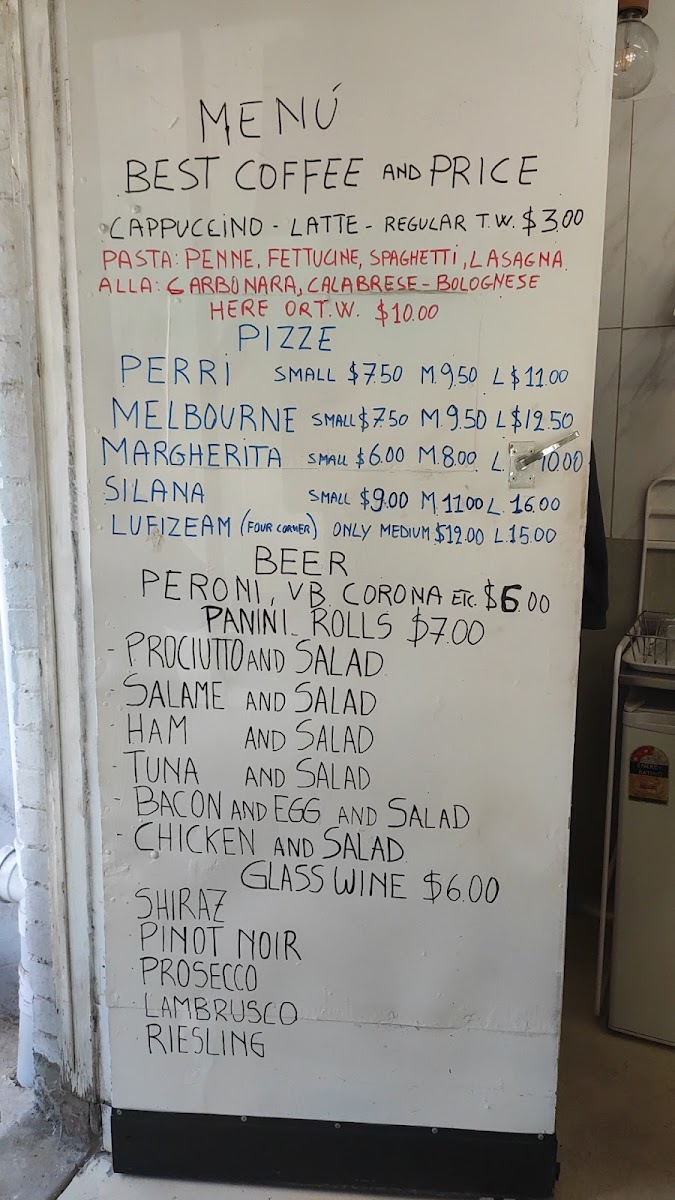 MENÚ
BEST COFFEE AND PRICE
CAPPUCCINO - LATTE - REGULAR T.W. $3.00
PASTA: PENNE, FETTUCINE, SPAGHETTI, LASAGNA
ALLA: CARBONARA, CALABRESE - BOLOGNESE
HERE OR T.W. $10.00
PIZZE
PERRI SMALL $7.50 M. 9.50 L $11.00
MELBOURNE SMALL $7.50 M. 9.50 L $12.50
MARGHERITA SMALL $6.00 M. 8.00 L. 10.00
SILANA SMALL $9.00 M. 11.00 L. 16.00
LUFIZEAM (FOUR CORNER) ONLY MEDIUM $12.00 L. 15.00
BEER
PERONI, VB CORONA ETC. $6.00
PANINI - ROLLS $7.00
- PROCIUTTO AND SALAD
- SALAME AND SALAD
- HAM AND SALAD
- TUNA AND SALAD
- BACON AND EGG AND SALAD
- CHICKEN AND SALAD
GLASS WINE $6.00
SHIRAZ
PINOT NOIR
PROSECCO
LAMBRUSCO
RIESLING
ENERGY RATING